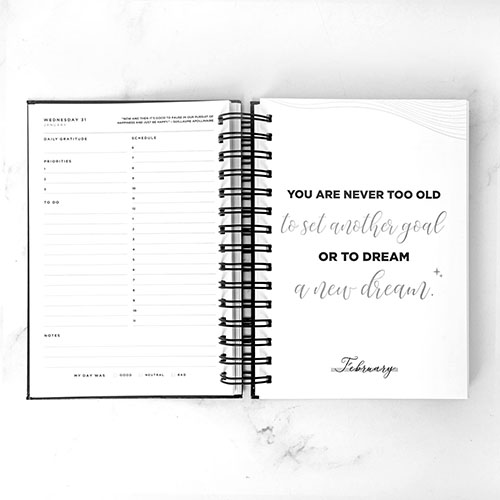 WEDNESDAY 31
JANUARY
"NOW AND THEN IT'S GOOD TO PAUSE IN OUR PURSUIT OF
HAPPINESS AND JUST BE HAPPY." - GUILLAUME APOLLINAIRE
DAILY GRATITUDE
SCHEDULE
6
7
PRIORITIES
8
1
9
2
10
3
11
TO DO
12
1
2
3
4
5
6
7
8
9
10
11
NOTES
MY DAY WAS GOOD NEUTRAL BAD
YOU ARE NEVER TOO OLD
to set another goal
OR TO DREAM
a new dream.
February